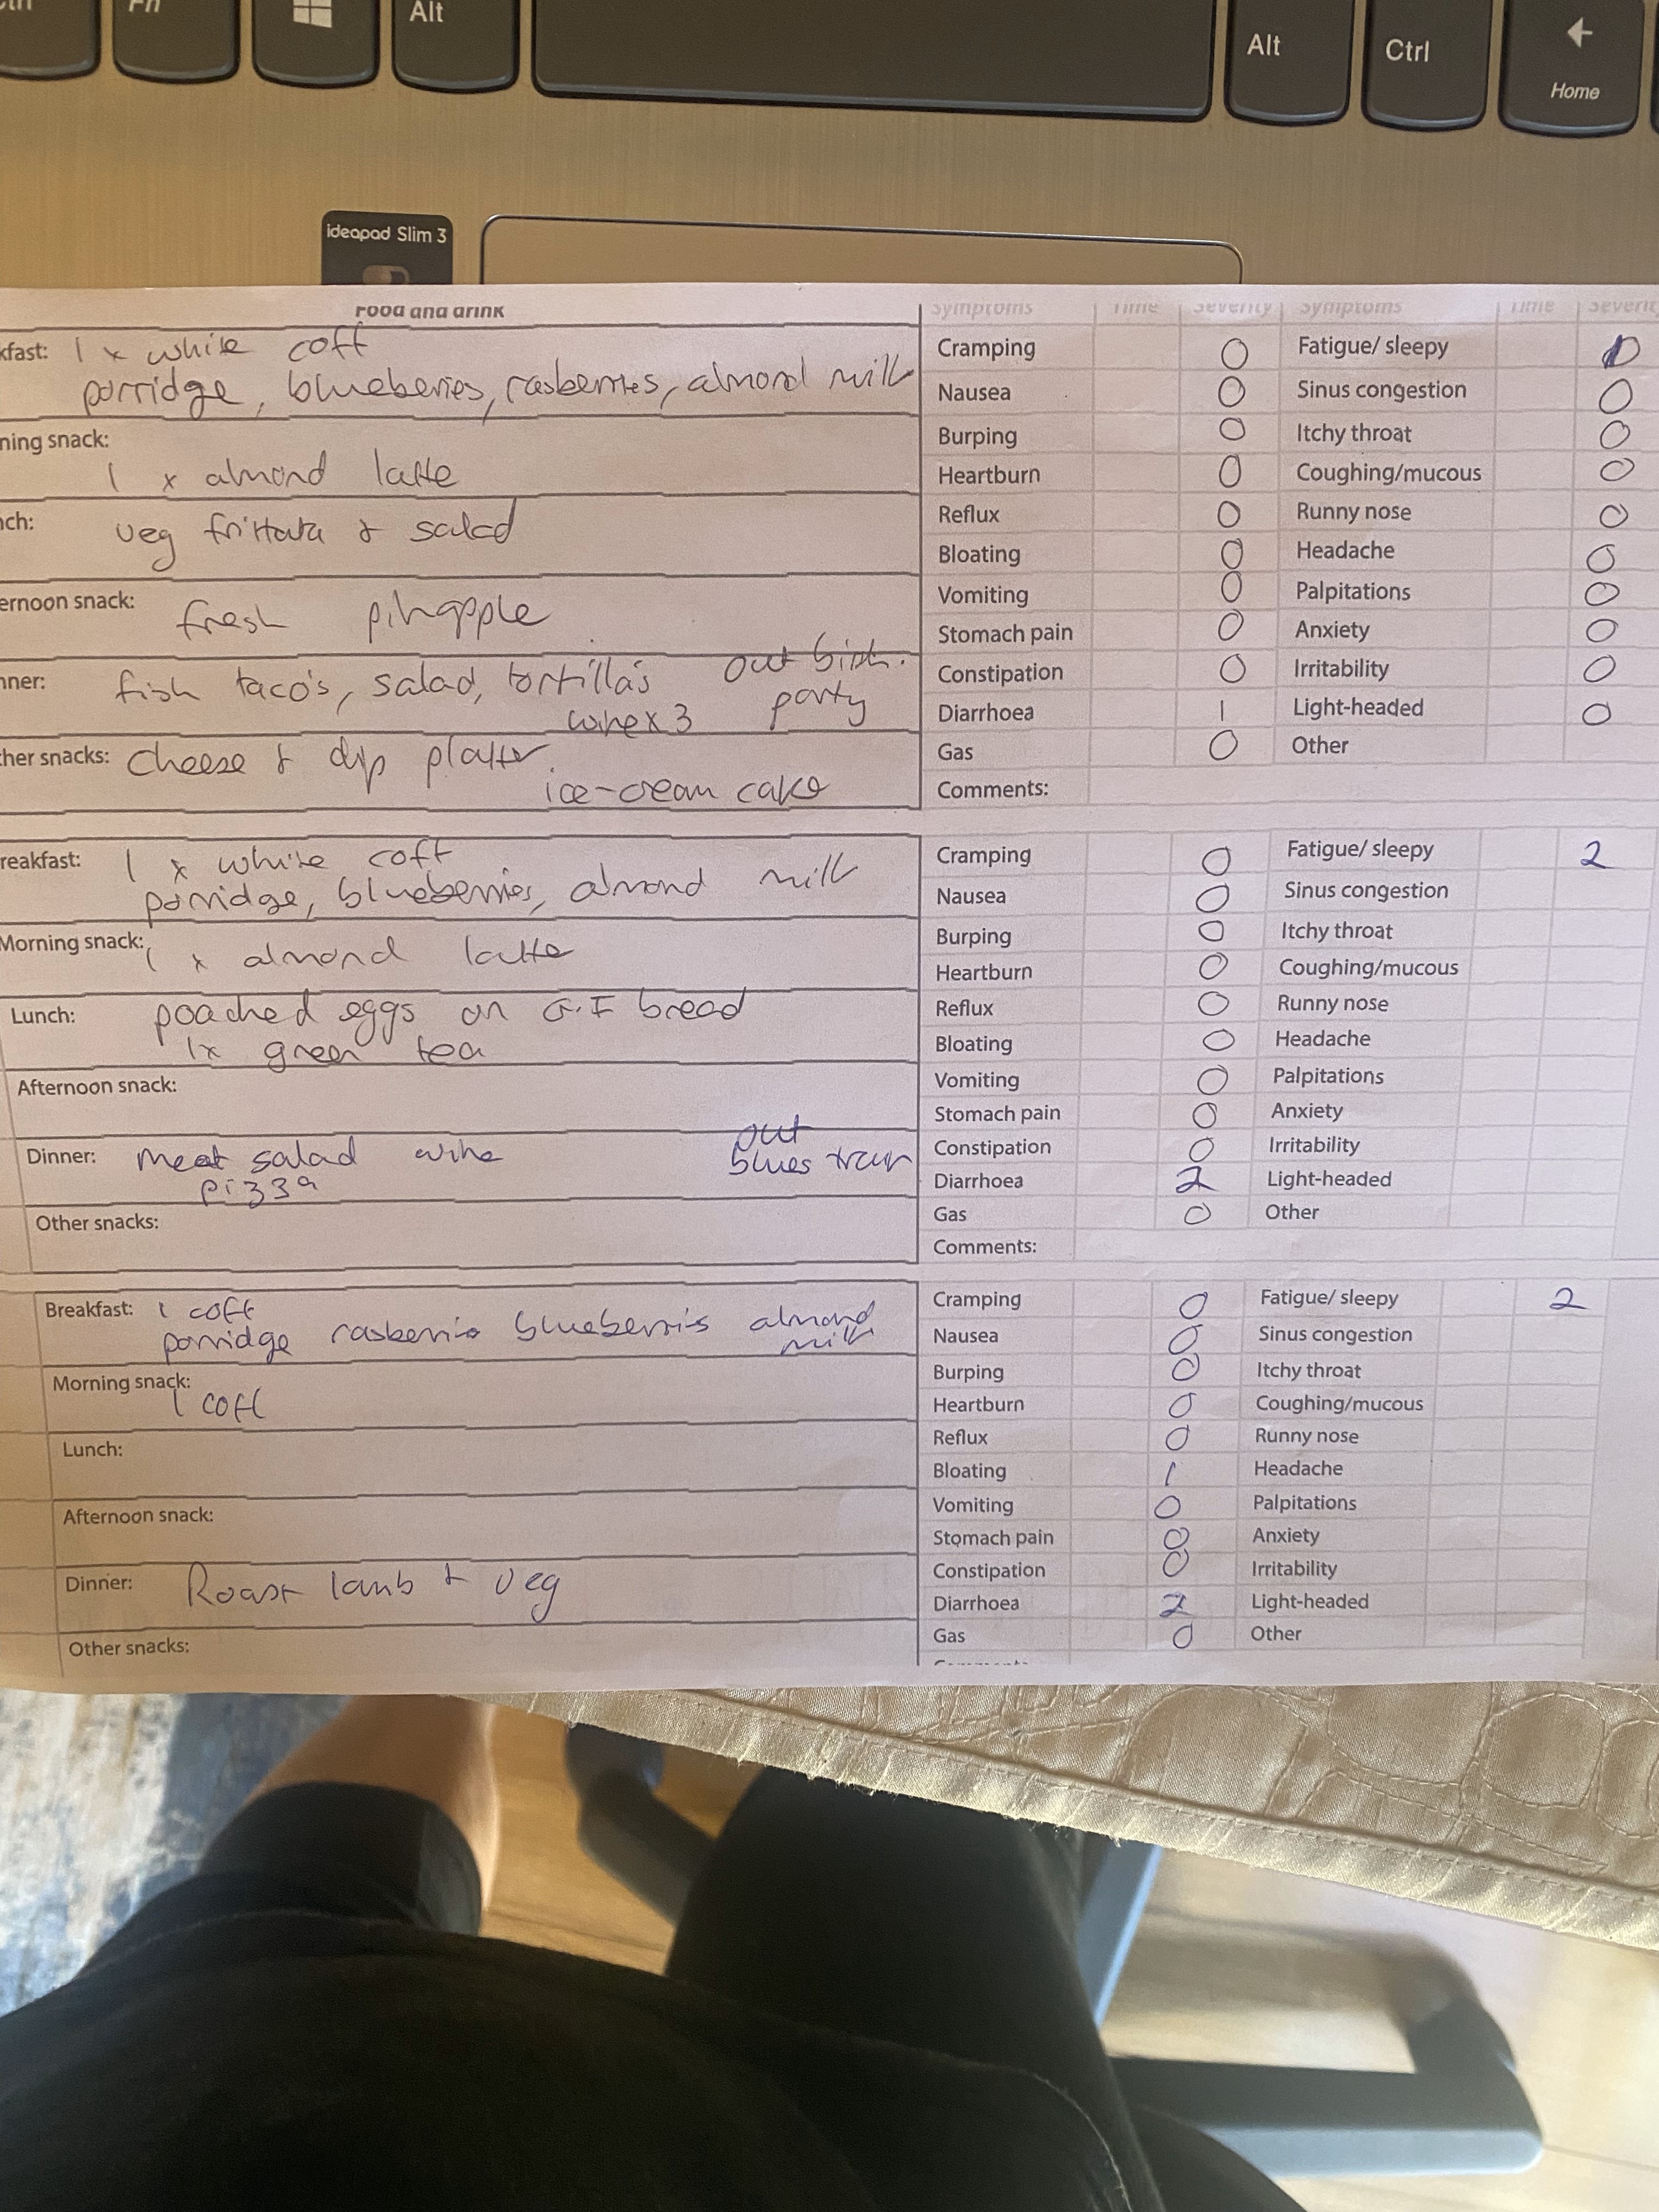 Fn
Alt
Alt
Ctrl
Home
ideapad Slim 3
Food and drink
Symptoms Time Severity Symptoms Time Severit
kfast: 1 x white coff
porridge, blueberies, rasberries, almond milk
ning snack:
1 x almond latte
ch:
veg frittata & salad
ernoon snack:
fresh pinapple
nner: fish taco's, salad, tortilla's out birth.
wine x 3 party
her snacks: cheese & dip platter.
ice-cream cake
Cramping 0 Fatigue/ sleepy
Nausea 0 Sinus congestion 0
Burping 0 Itchy throat 0
Heartburn 0 Coughing/mucous 0
Reflux 0 Runny nose 0
Bloating 0 Headache 0
Vomiting 0 Palpitations 0
Stomach pain 0 Anxiety 0
Constipation 0 Irritability 0
Diarrhoea 1 Light-headed 0
Gas 0 Other
Comments:
reakfast: 1 x white coff
porridge, blueberries, almond milk
Morning snack: 1 x almond latte
Lunch: poached eggs on G.F bread
1x green tea
Afternoon snack:
Dinner: meat salad wine out
pizza blues train
Other snacks:
Cramping 0 Fatigue/ sleepy 2
Nausea 0 Sinus congestion
Burping 0 Itchy throat
Heartburn 0 Coughing/mucous
Reflux 0 Runny nose
Bloating 0 Headache
Vomiting 0 Palpitations
Stomach pain 0 Anxiety
Constipation 0 Irritability
Diarrhoea 2 Light-headed
Gas 0 Other
Comments:
Breakfast: 1 coff
porridge rasberris blueberris almond
milk
Morning snack:
1 coff
Lunch:
Afternoon snack:
Dinner: Roast lamb & veg
Other snacks:
Cramping 0 Fatigue/ sleepy 2
Nausea 0 Sinus congestion
Burping 0 Itchy throat
Heartburn 0 Coughing/mucous
Reflux 0 Runny nose
Bloating 1 Headache
Vomiting 0 Palpitations
Stomach pain 0 Anxiety
Constipation 0 Irritability
Diarrhoea 2 Light-headed
Gas 0 Other